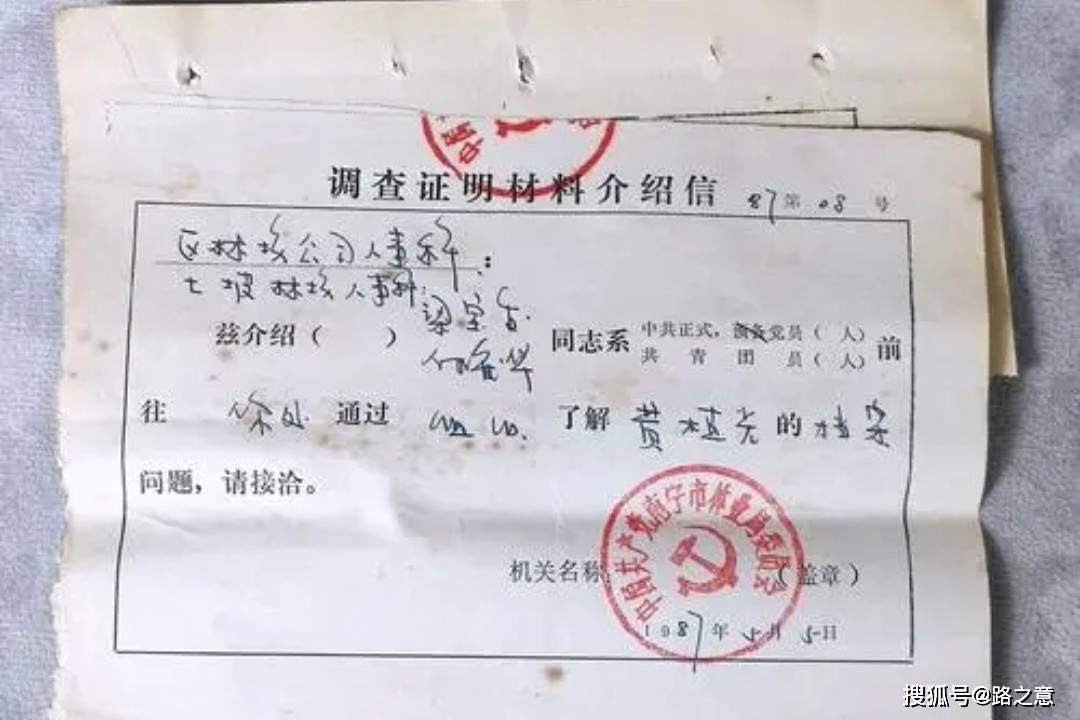 调查证明材料介绍信 87第08号
区林场公司人事科：
七坡林场人事科：
兹介绍（ ）同志系 中共正式，预备党员（ 人） 前
共青团员（ 人）
往 你处 通过 了解 黄植光 的 档案
问题，请接洽。
中国共产党南宁市林业局委员会
机关名称：（盖章）
1987年5月5日
搜狐号@路之意